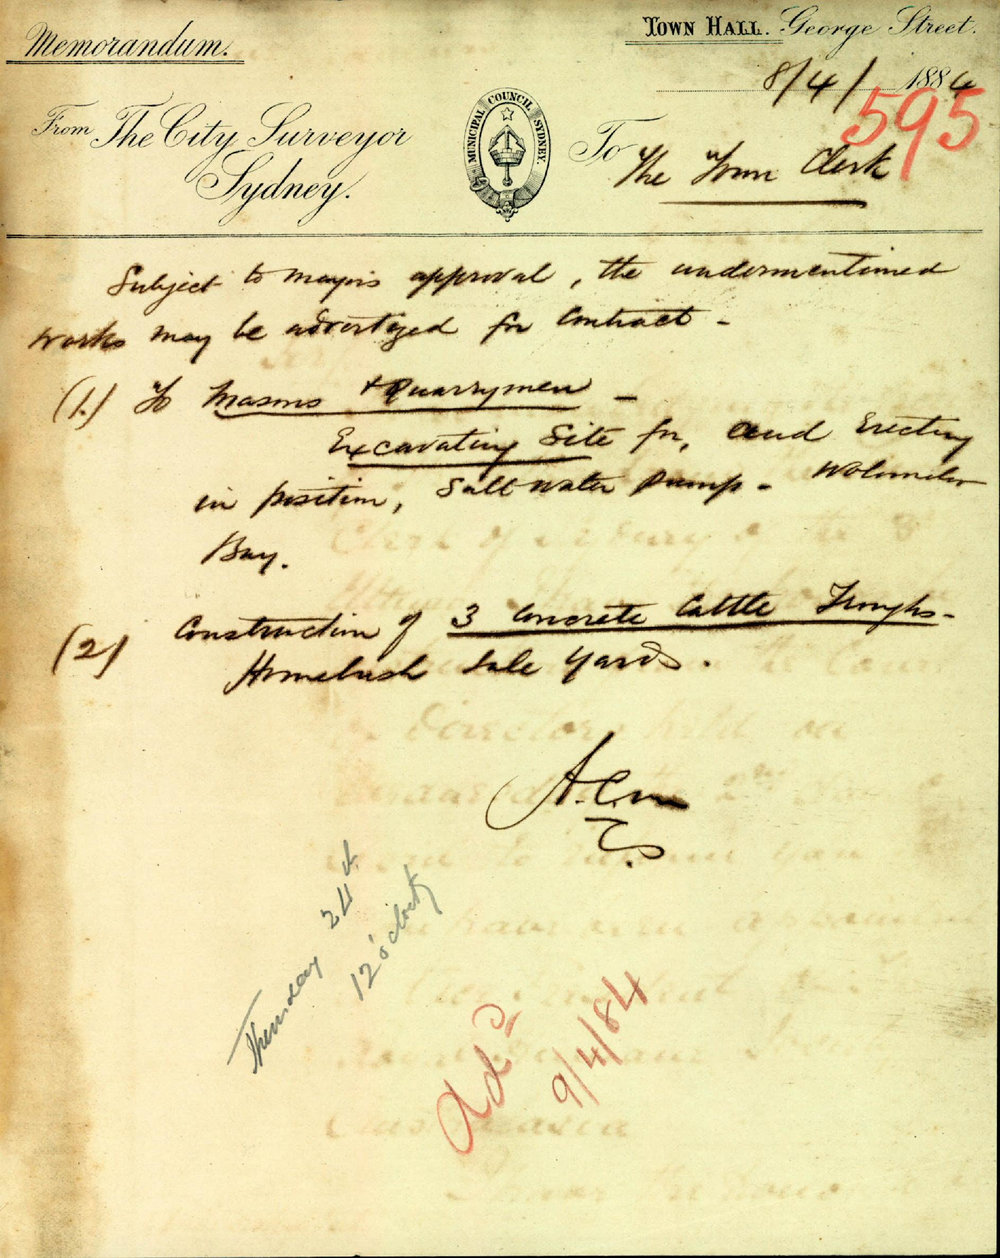 Memorandum.
Town Hall. George Street.
8/4/ 1884
595
From The City Surveyor
Sydney.
MUNICIPAL COUNCIL SYDNEY.
To The Town Clerk
Subject to mayors approval, the undermentioned
works may be advertized for Contract -
(1.) To Masons & Quarrymen -
Excavating Site for, and Erecting
in position, Salt water Pump - Woloomoloo
Bay.
(2) Construction of 3 Concrete Cattle Troughs -
Homebush Sale Yards.
A.C.M
C.S.
Thursday 24th
12 o'clock
Add
9/4/84